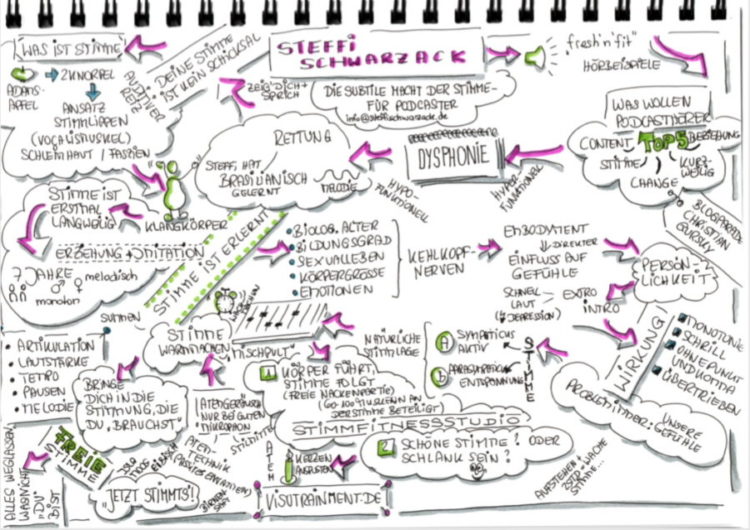 STEFFI
SCHWARZACK
DIE SUBTILE MACHT DER STIMME -
FÜR PODCASTER
info@steffischwarzack.de
"fresh'n'fit"
HÖRBEISPIELE
WAS WOLLEN
PODCASTHÖRER
CONTENT TOP 5 BEZIEHUNG
STIMME KURZ-
WEILIG
CHANGE
BLOGPARADE
CHRISTIAN
GURSKY
HYPER
FUNKTIONELL
DYSPHONIE
HYPO-
FUNKTIONELL
RETTUNG
STEFFI HAT
BRASILIANISCH
GELERNT MELODIE
ZEIG DICH +
SPRICH
DEINE STIMME
IST KEIN SCHICKSAL
AUDITIVER
REIZ
WAS IST STIMME
ADAMS-
APFEL
2 KNORPEL
ANSATZ
STIMMLIPPEN
(VOCALISMUSKEL)
SCHLEIMHAUT / FASZIEN
KLANGKÖRPER
STIMME IST
ERSTMAL
LANGWEILIG
ERZIEHUNG + IMITATION
7 JAHRE melodisch
monoton
STIMME IST ERLERNT
• BIOLOG. ALTER
• BILDUNGSGRAD
• SEXUALLEBEN
• KÖRPERGRÖSSE
• EMOTIONEN
KEHLKOPF-
NERVEN
EMBODYMENT
DIREKTER
EINFLUSS AUF
GEFÜHLE
SCHNELL
LAUT
(DEPRESSION)
EXTRO
INTRO
PERSÖN-
LICHKEIT
WIRKUNG!
MONOTONIE
SCHRILL
OHNE PUNKT
UND KOMMA
ÜBERTRIEBEN
PROBLEMIMMER: UNSERE
GEFÜHLE
STIMME
NATÜRLICHE
STIMMLAGE
A SYMPATICUS
AKTIV
B PARASYMPATICUS
ENTSPANNUNG
"MISCHPULT"
SUMMEN
STIMME
WARMMACHEN
• ARTIKULATION
• LAUTSTÄRKE
• TEMPO
• PAUSEN
• MELODIE
BRINGE
DICH IN DIE
STIMMUNG, DIE
DU "BRAUCHST"
ATEMGERÄUSCH
NUR BEI GUTEN
MIKROPHON
ATEM-
TECHNIK
1 KÖRPER FÜHRT,
STIMME FOLGT
(FREIE NACKENPARTIE)
(60-100 MUSKELN AN
DER STIMME BETEILIGT)
STIMMFITNESSSTUDIO
2 SCHÖNE STIMME? ODER
SCHLANK SEIN?
AUFSTEHEN +
STIMME...
ATEM
KERZEN
AUSPUSTEN
VISUTRAINMENT.DE
FREIE
STIMME
"JETZT STIMMTS!"
ALLES WEGLASSEN,
WAS NICHT
"DU"
BIST